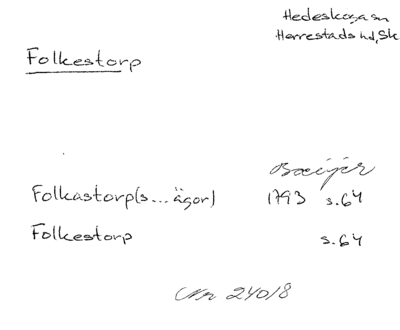 Hedeskoga sn
Herrestads hd, Sk
Folkestorp
Folkastorp(s... ägor) 1793 s. 64
Folkestorp s. 64
Nr 24018